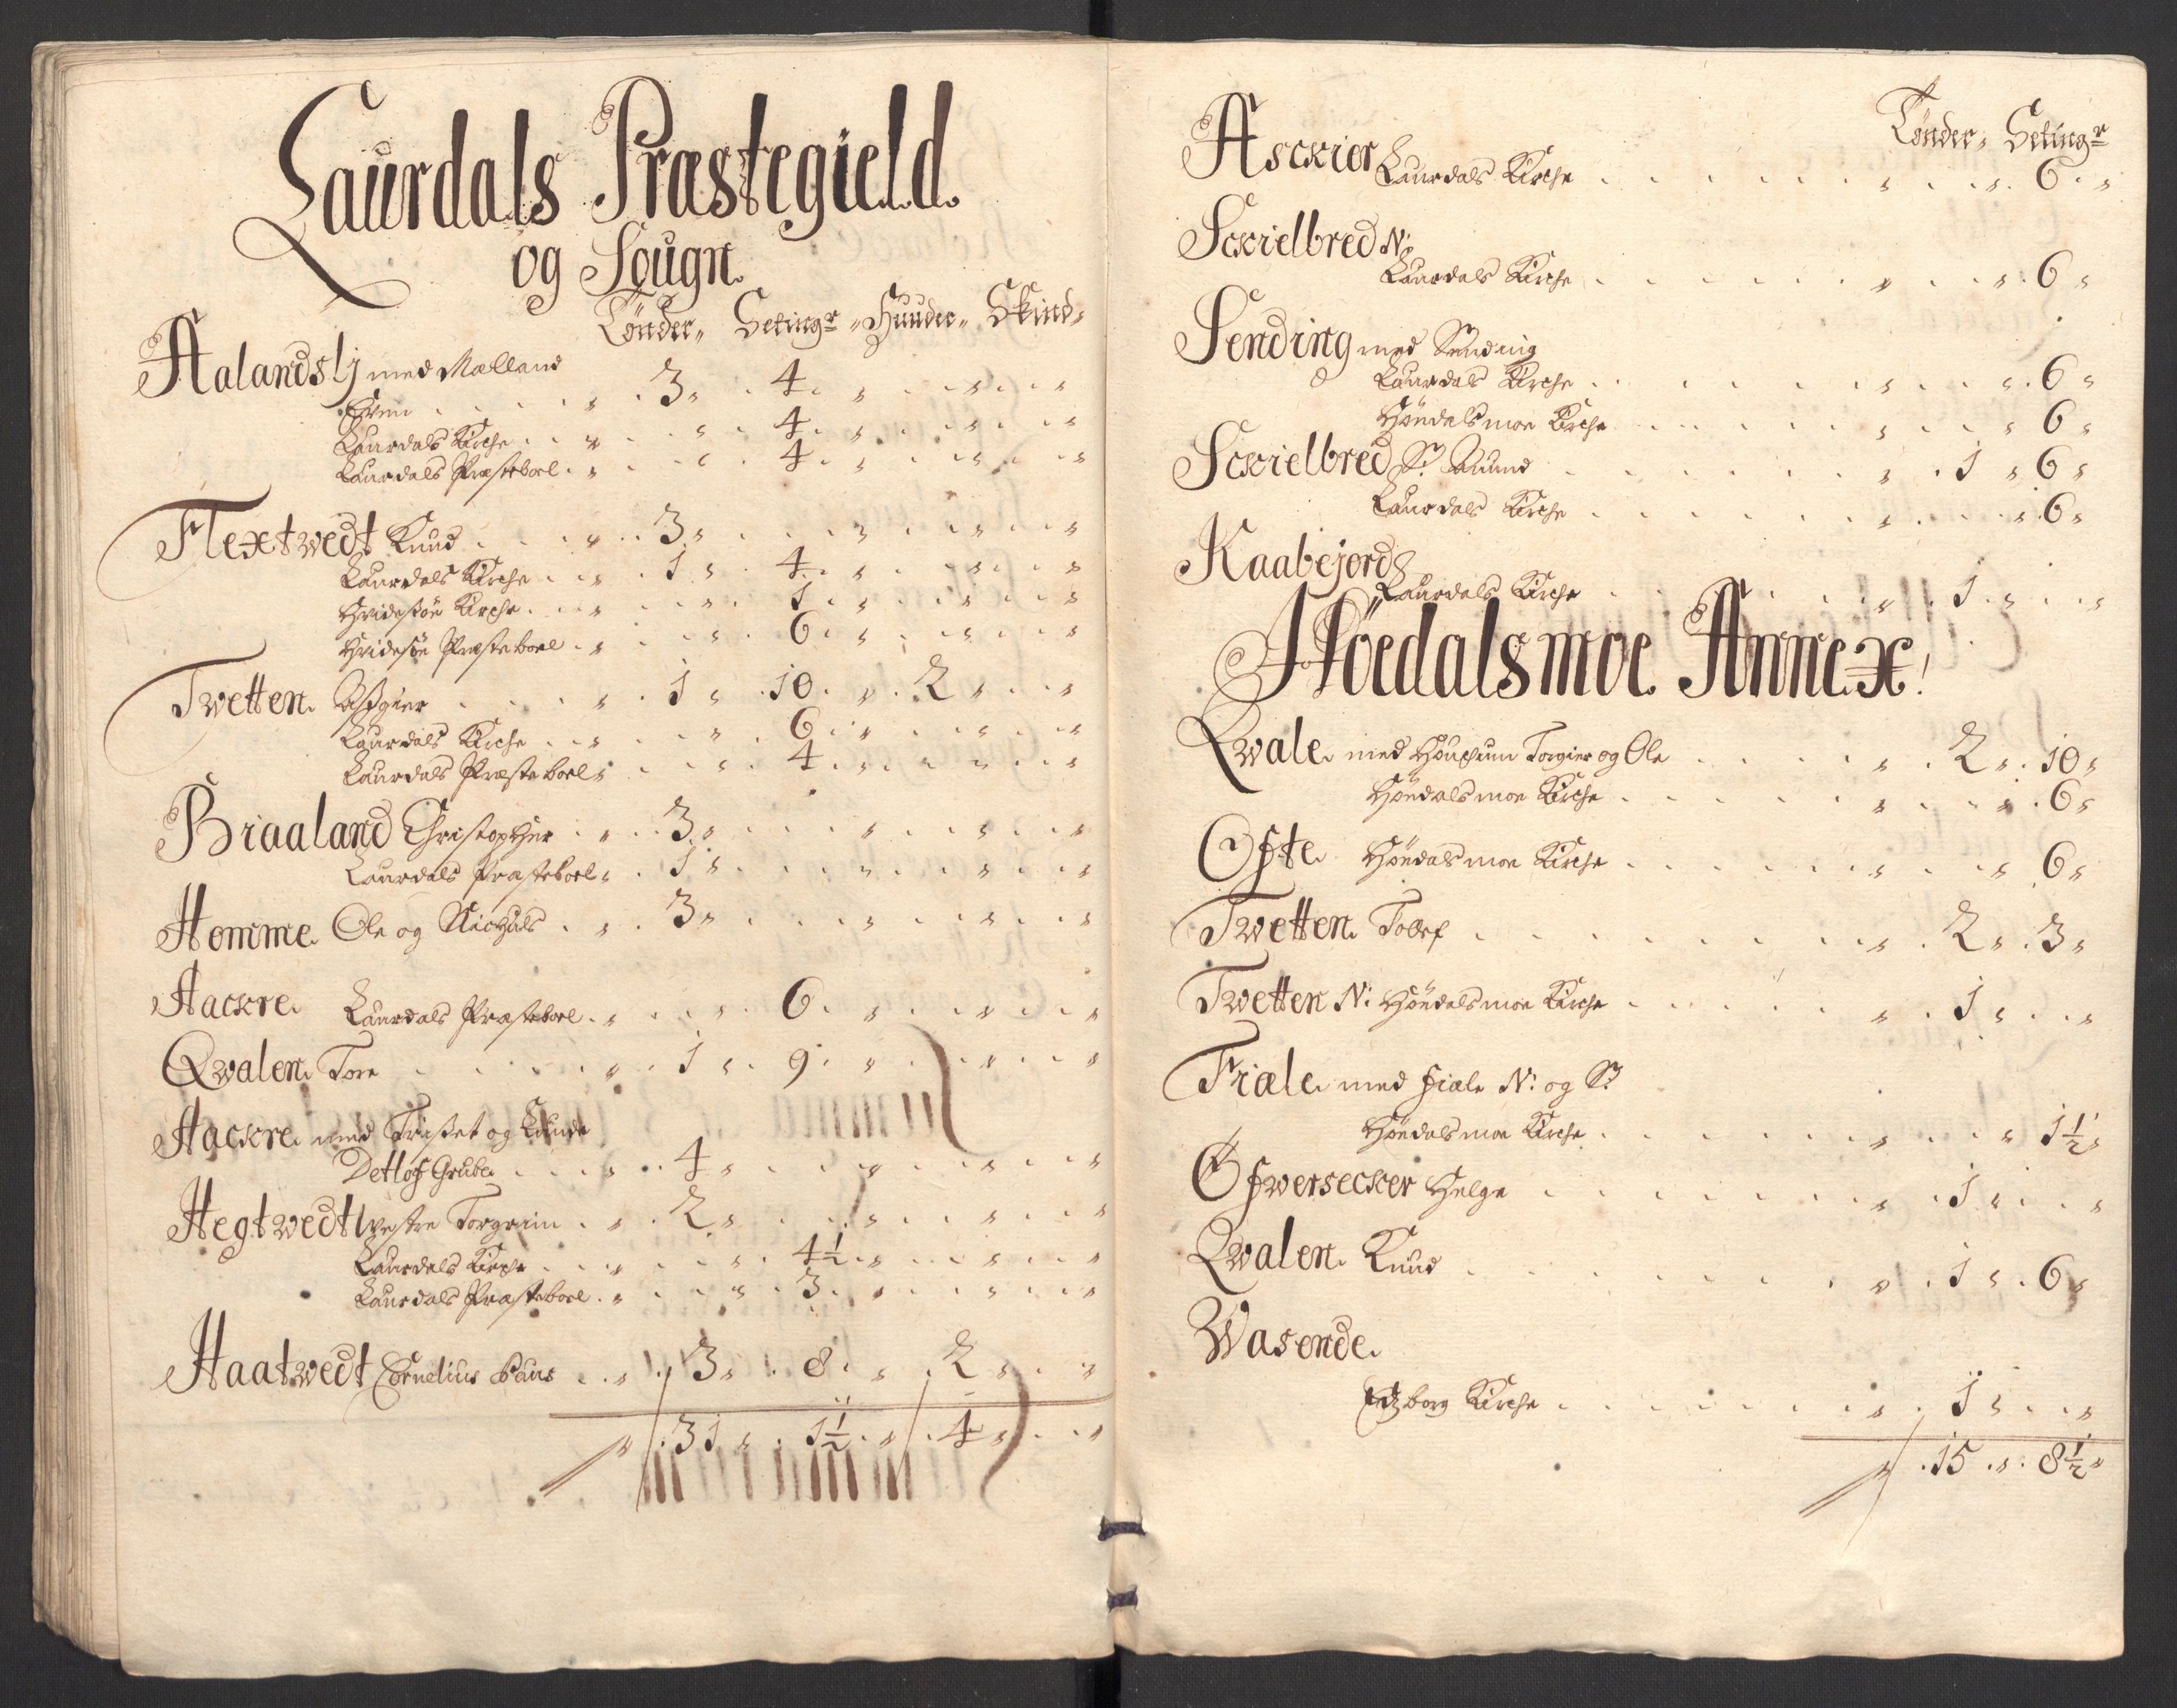 Laurdals Præstegield.
og Sougn.
Tønder, Setingr, Huuder, Skind,
Aalandslj med Mælland
Even . . . . 3 , . 4 . , . . . . .
Laurdals Kirche . . , . . , . 4 . , . . . . .
Laurdals Præsteboel . , . . , . 4 . , . . . . .
Flextwedt Knud . . . , . . 3 , . . . . . . . .
Laurdals Kirche . . , . 1 , . 4 . , . . . . .
Hvidesøe Kirche . . , . . . , . 1 . , . . . . .
Hvidesøe Præsteboel . , . . , . 6 . , . . . . .
Twetten. Asgier . . . . , . 1 , . 10 . , . 2 , . . ,
Laurdals Kirche . . , . . , . 6 . , . . . . .
Laurdals Præsteboel , . . , . 4 . , . . . . .
Braaland Christopher . , . . 3 , . . . . . . . .
Laurdals Præsteboel , . 1 , . . . . . . . .
Homme. Ole og Nichuls . . , . 3 , . . . . . . . .
Aackre. Laurdals Præsteboel . , . . . , . 6 . , . . . . .
Qwalen. Tore . . . . . , . 1 , . 9 . , . . . . .
Aackre. med Tristet og Lunde
Detlof Grube . . . , . 4 , . . . . . . . .
Hegtwedt westre Torgrim . . , . 2 , . . . . . . . .
Laurdals Kirche . . , . . . , . 4½ . , . . . . .
Laurdals Præsteboel . , . . , . 3 . , . . . . .
Haatwedt Cornelius Paus . . , . 3 , . 8 . , . 2 , . . ,
, . 31 , . 1½ . , . 4 , . . ,
Tønder, Setingr
Asckier Laurdals Kirche . . . . . . , . . , . 6 . ,
Sckielbred N:
Laurdals Kirche . . . . . . , . . , . 6 ,
Sending med Sending
Laurdals Kirche . . . . . . , . . , . 6 ,
Høydalsmoe Kirche . . . . . , . . , 6 ,
Sckielbred Sr. Amund . . . . . . , . 1 , 6 ,
Laurdals Kirche . . . . . . , . . , 6 ,
Kaabejord
Laurdals Kirche . . . . . . , . 1 , . . ,
Höedalsmoe Annex!
Qwale. med Houchum Torgier og Ole . . . . , . 2 , . 10 ,
Høydalsmoe Kirche . . . . . , . . , . 6 ,
Ofste. Høydalsmoe Kirche . . . . . , . . , 6 ,
Twetten. Tollef . . . . . . . , . 2 , . 3 ,
Twetten N: Høydalsmoe Kirche . . . . . , . 1 , . . ,
Fiæle. med Fiæle N: og Sr
Høydalsmoe Kirche . . . . . . , . . , 1½ ,
Øfwersecker Helge . . . . . . . , . 1 , . . ,
Qwalen. Knud . . . . . . . , . 1 , . 6 ,
Wasende.
Eidzborg Kirche . . . . . . , . 1 , . . ,
, . 15 . , . 8½ ,